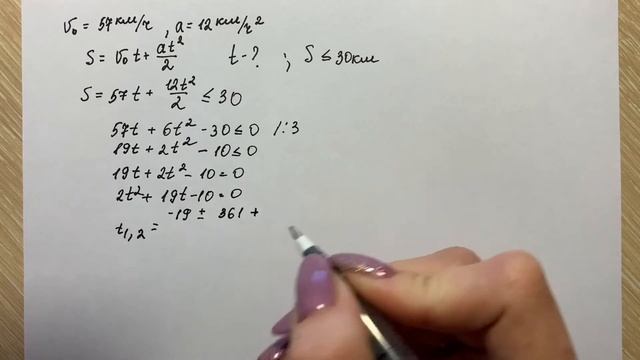 v₀ = 57 км/ч , a = 12 км/ч²
S = v₀t + at²/2 t - ? ; S ≤ 30 км
S = 57t + 12t²/2 ≤ 30
57t + 6t² - 30 ≤ 0 /:3
19t + 2t² - 10 ≤ 0
19t + 2t² - 10 = 0
2t² + 19t - 10 = 0
t₁,₂ = -19 ± 361 +